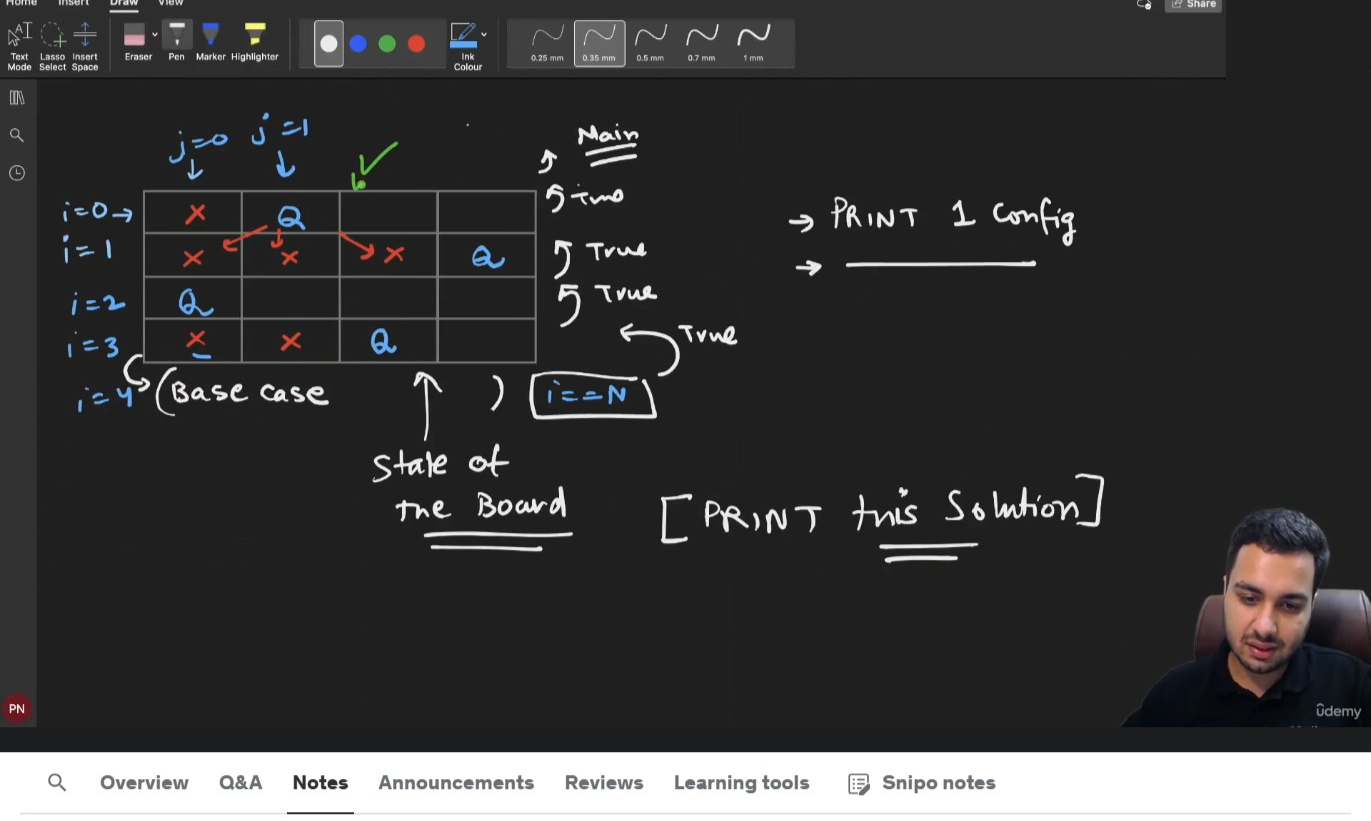 Home Insert Draw View
Share
Text Mode
Lasso Select
Insert Space
Eraser
Pen
Marker
Highlighter
Ink Colour
0.25 mm
0.35 mm
0.5 mm
0.7 mm
1 mm
j=0
j=1
Main
i=0→ X Q True
→ PRINT 1 Config
i=1 X X X Q True
→
i=2 Q True
i=3 X X Q True
i=4 (Base case ) i==N
State of
the Board
[PRINT this Solution]
PN
ûdemy
Overview Q&A Notes Announcements Reviews Learning tools Snipo notes